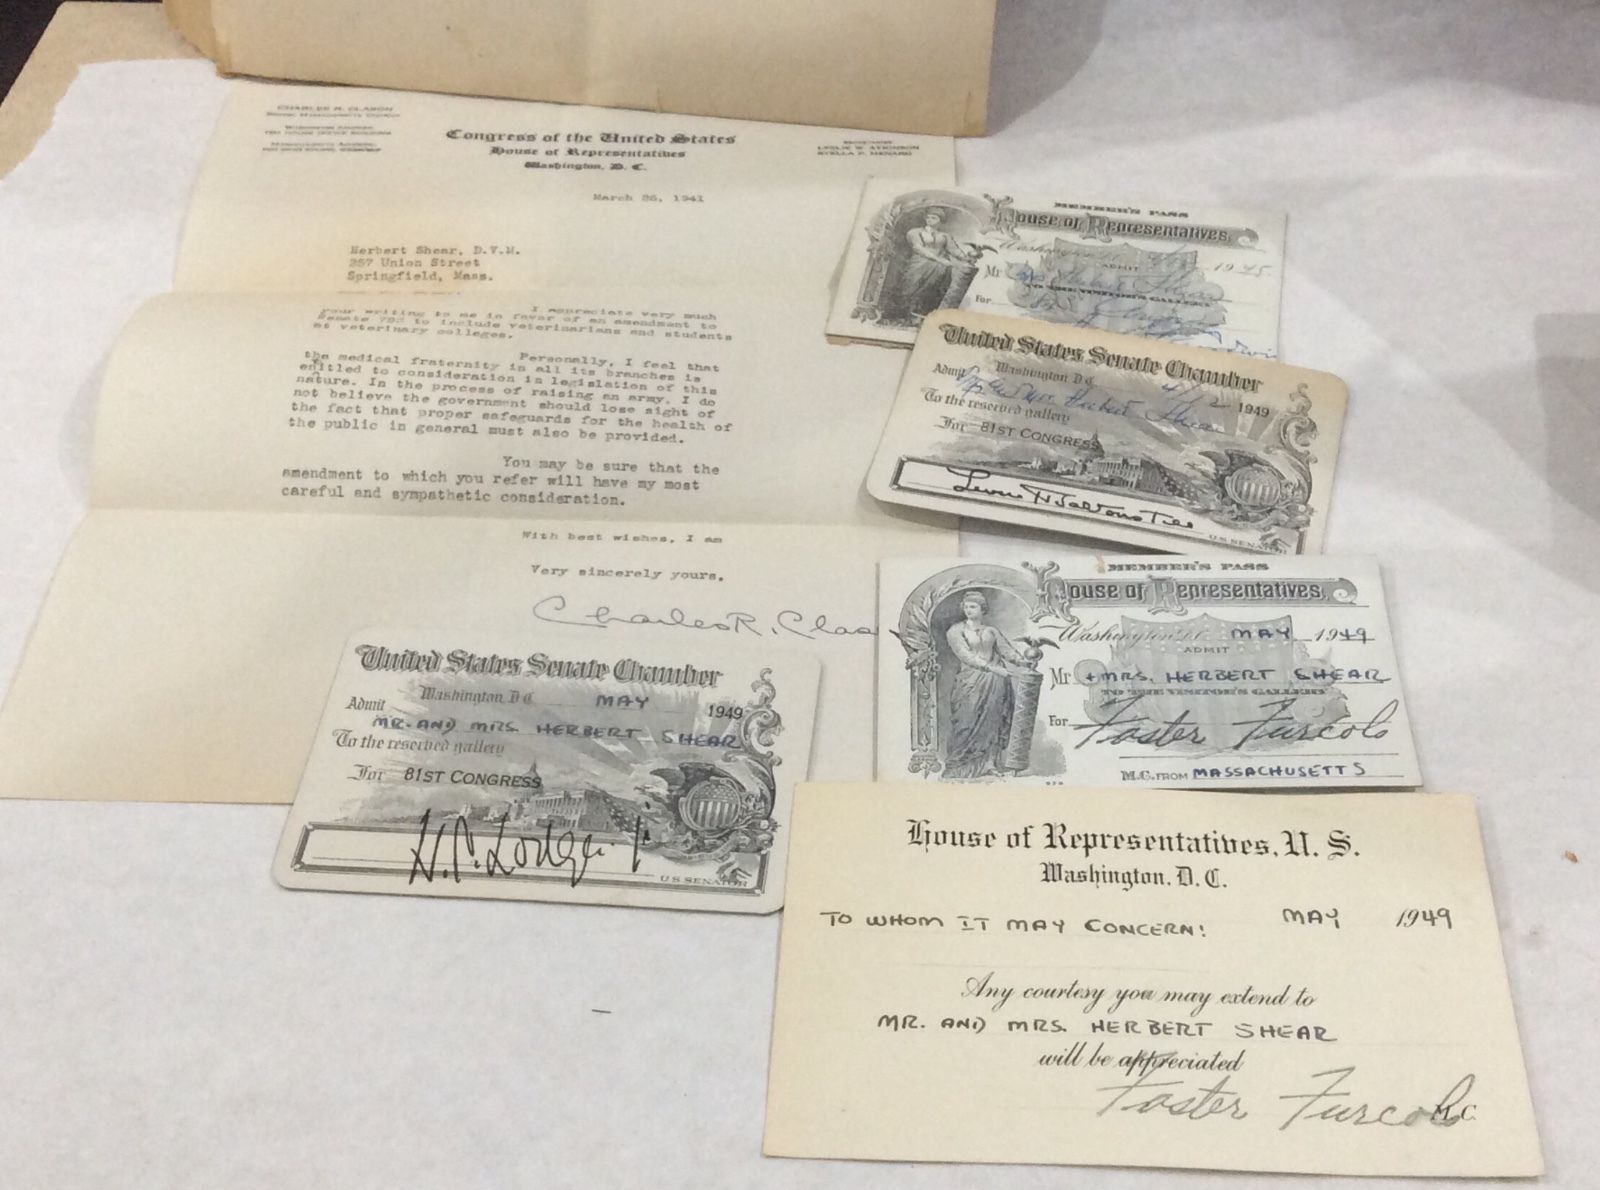 CHARLES R. CLASON
Congress of the United States
House of Representatives
Washington, D. C.
LESLIE W. ATKINSON
STELLA P. MENARD
March 26, 1941
Herbert Shear, D.V.M.
357 Union Street
Springfield, Mass.
I appreciate very much
your writing to me in favor of an amendment to
Senate 783 to include veterinarians and students
at veterinary colleges.
Personally, I feel that
the medical fraternity in all its branches is
entitled to consideration in legislation of this
nature. In the process of raising an army, I do
not believe the government should lose sight of
the fact that proper safeguards for the health of
the public in general must also be provided.
You may be sure that the
amendment to which you refer will have my most
careful and sympathetic consideration.
With best wishes, I am
Very sincerely yours,
Charles R. Clas
MEMBER'S PASS
House of Representatives,
Washington D.C. 1945
ADMIT
Mr
TO THE VISITOR'S GALLERY
For
United States Senate Chamber
Washington D.C. 4/12 1949
Admit Mr. and Mrs. Herbert Shear
To the reserved gallery
For 81ST CONGRESS
Leverett Saltonstall
U.S. SENATOR
MEMBER'S PASS
House of Representatives,
Washington D.C. MAY 1949
ADMIT
Mr + MRS. HERBERT SHEAR
TO THE VISITOR'S GALLERY
For Foster Furcolo
M.C. FROM MASSACHUSETTS
United States Senate Chamber
Washington D.C. MAY 1949
Admit
MR. AND MRS. HERBERT SHEAR
To the reserved gallery
For 81ST CONGRESS
H. C. Lodge Jr
U.S. SENATOR
House of Representatives, U. S.
Washington, D. C.
TO WHOM IT MAY CONCERN: MAY 1949
Any courtesy you may extend to
MR. AND MRS. HERBERT SHEAR
will be appreciated
Foster Furcolo
M.C.